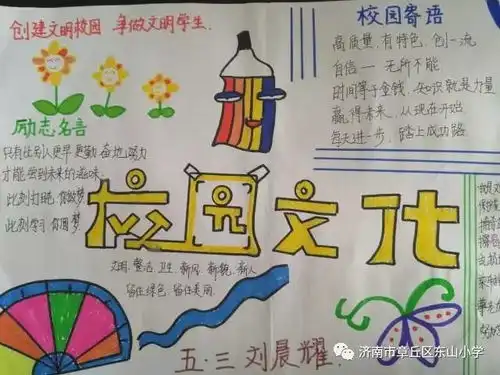 创建文明校园 争做文明学生.
校园寄语
高质量,有特色,创一流
自信一无所不能
时间等于金钱,知识就是力量
赢得未来,从现在开始
每天进一步,踏上成功路
励志名言
只有比别人更早更勤奋地努力
才能尝到未来的滋味.
此刻打盹,你做梦
此刻学习,你圆梦
校园文化
文明 整洁 卫生 新风 新貌 新人
留住绿色,留住美丽.
五.三刘晨耀
济南市章丘区东山小学